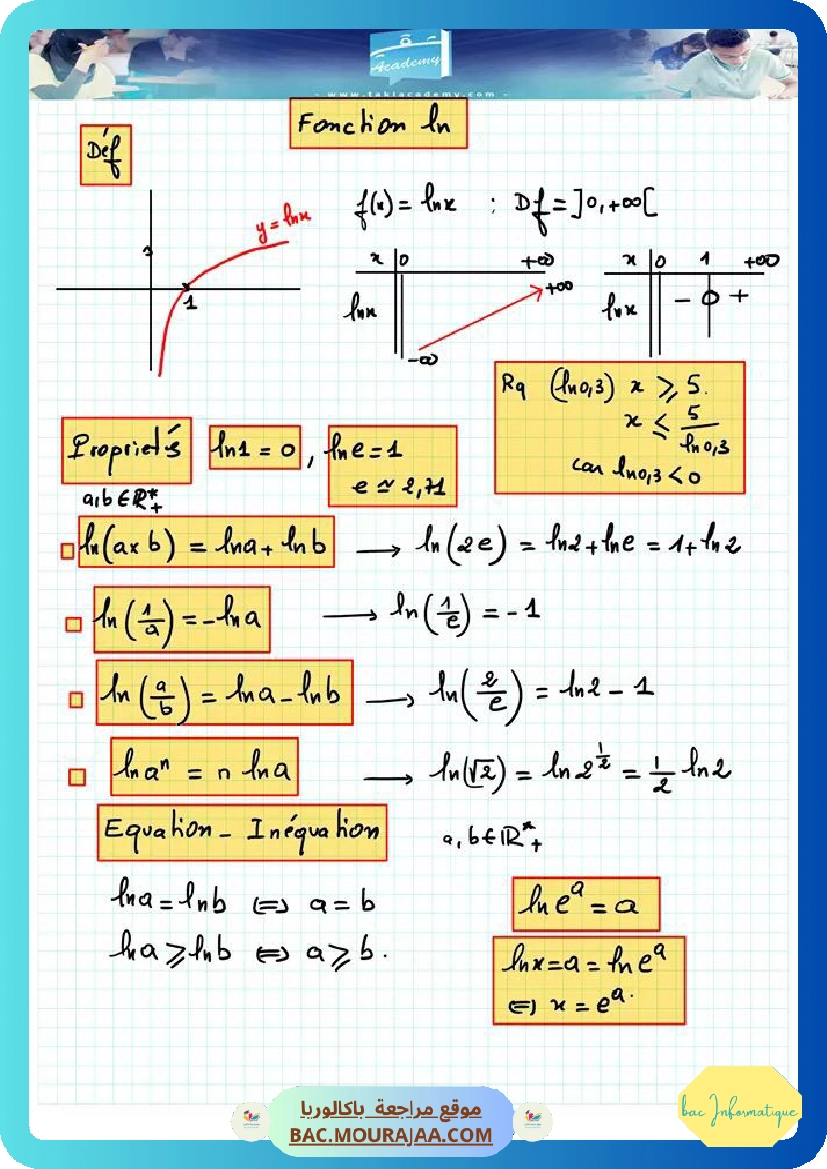 Academy
- www.takiacademy.com -
Fonction ln
Déf
y = lnx
1
f(x) = lnx : Df = ]0,+∞[
x 0 +∞
lnx -∞ +∞
x 0 1 +∞
lnx - 0 +
Rq (ln0,3) x ⩾ 5.
x ⩽ 5/ln0,3
car ln0,3 < 0
Proprietés ln1 = 0 , lne = 1
e ≃ 2,71
a,b ∈ ℝ*₊
ln(a×b) = lna + lnb → ln(2e) = ln2 + lne = 1 + ln2
ln(1/a) = -lna → ln(1/e) = -1
ln(a/b) = lna - lnb → ln(2/e) = ln2 - 1
ln aⁿ = n lna → ln(√2) = ln 2^(1/2) = 1/2 ln2
Equation - Inéquation a, b ∈ ℝ*₊
lna = lnb ⟺ a = b
lna ⩾ lnb ⟺ a ⩾ b.
ln eᵃ = a
lnx = a = ln eᵃ
⟺ x = eᵃ.
موقع مراجعة باكالوريا
BAC.MOURAJAA.COM
bac Informatique